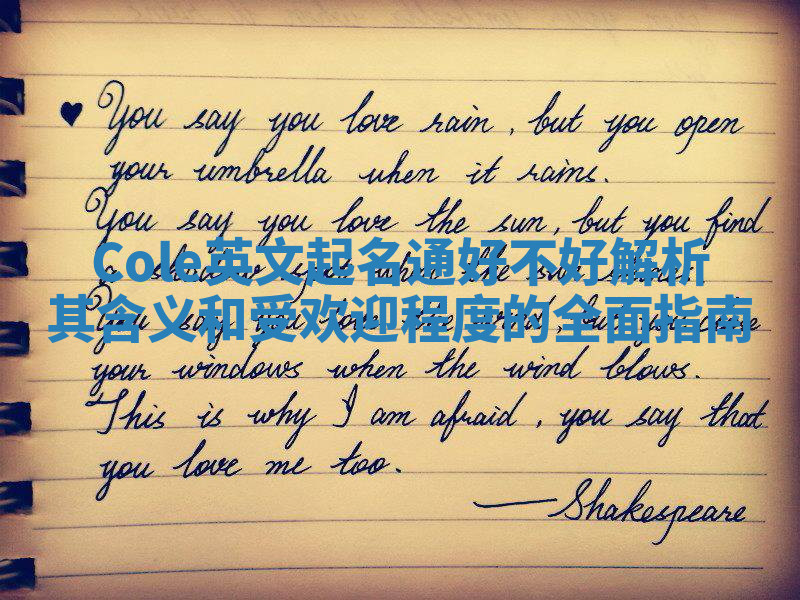 ♥ You say you love rain, but you open
your umbrella when it rains.
You say you love the sun, but you find
Cole英文起名通好不好解析
a shadow spot when the sun shines.
其含义和受欢迎程度的全面指南
You say you love the wind, but you close
your windows when the wind blows.
This is why I am afraid, you say that
you love me too.
—Shakespeare